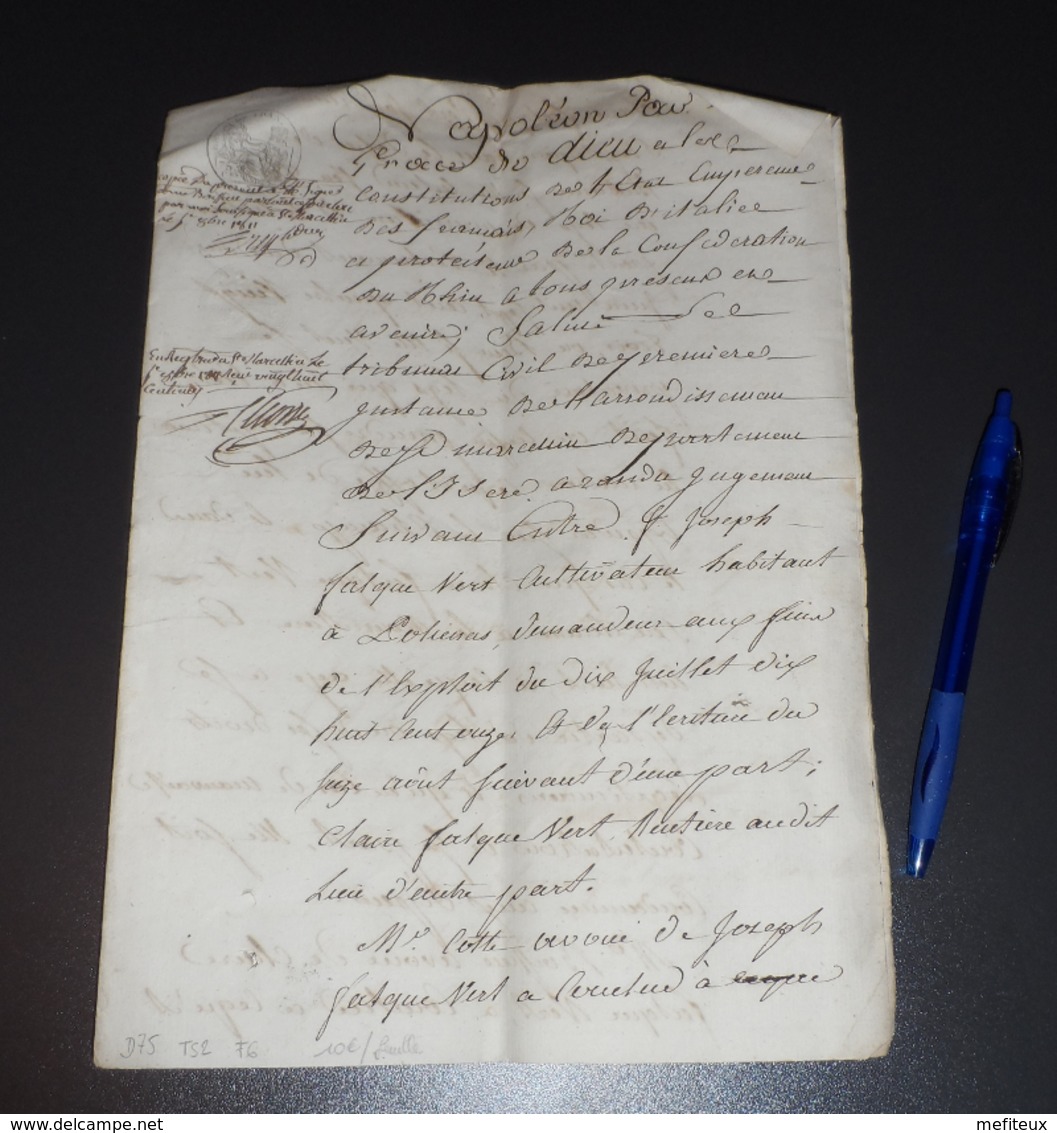 Napoléon Par
Grace de dieu et les
constitutions de l'Etat Empereur
Des francais, Roi D'italie
et protecteur De la Confédération
Du Rhin a tous présens et
avenir, Salut Le
tribunal Civil De premiere
instance De l'arrondissement
De St marcellin Departement
De l'Isere, a rendu jugement
Suivant Entre Sr Joseph
falque Vert Cultivateur habitant
à Polienas, demandeur aux fins
de l'Exploit du dix Juillet dix
huit Cent onze, Et de l'Ecriture du
Seize août Suivant d'une part;
Claire falque Vert Rentière audit
Lieu d'autre part.
Me Cotte avoué de Joseph
falque Vert a Conclud à
Enregistré a St Marcellin Le
centimes
D75 TS2 F6 10€/feuille
mefiteux